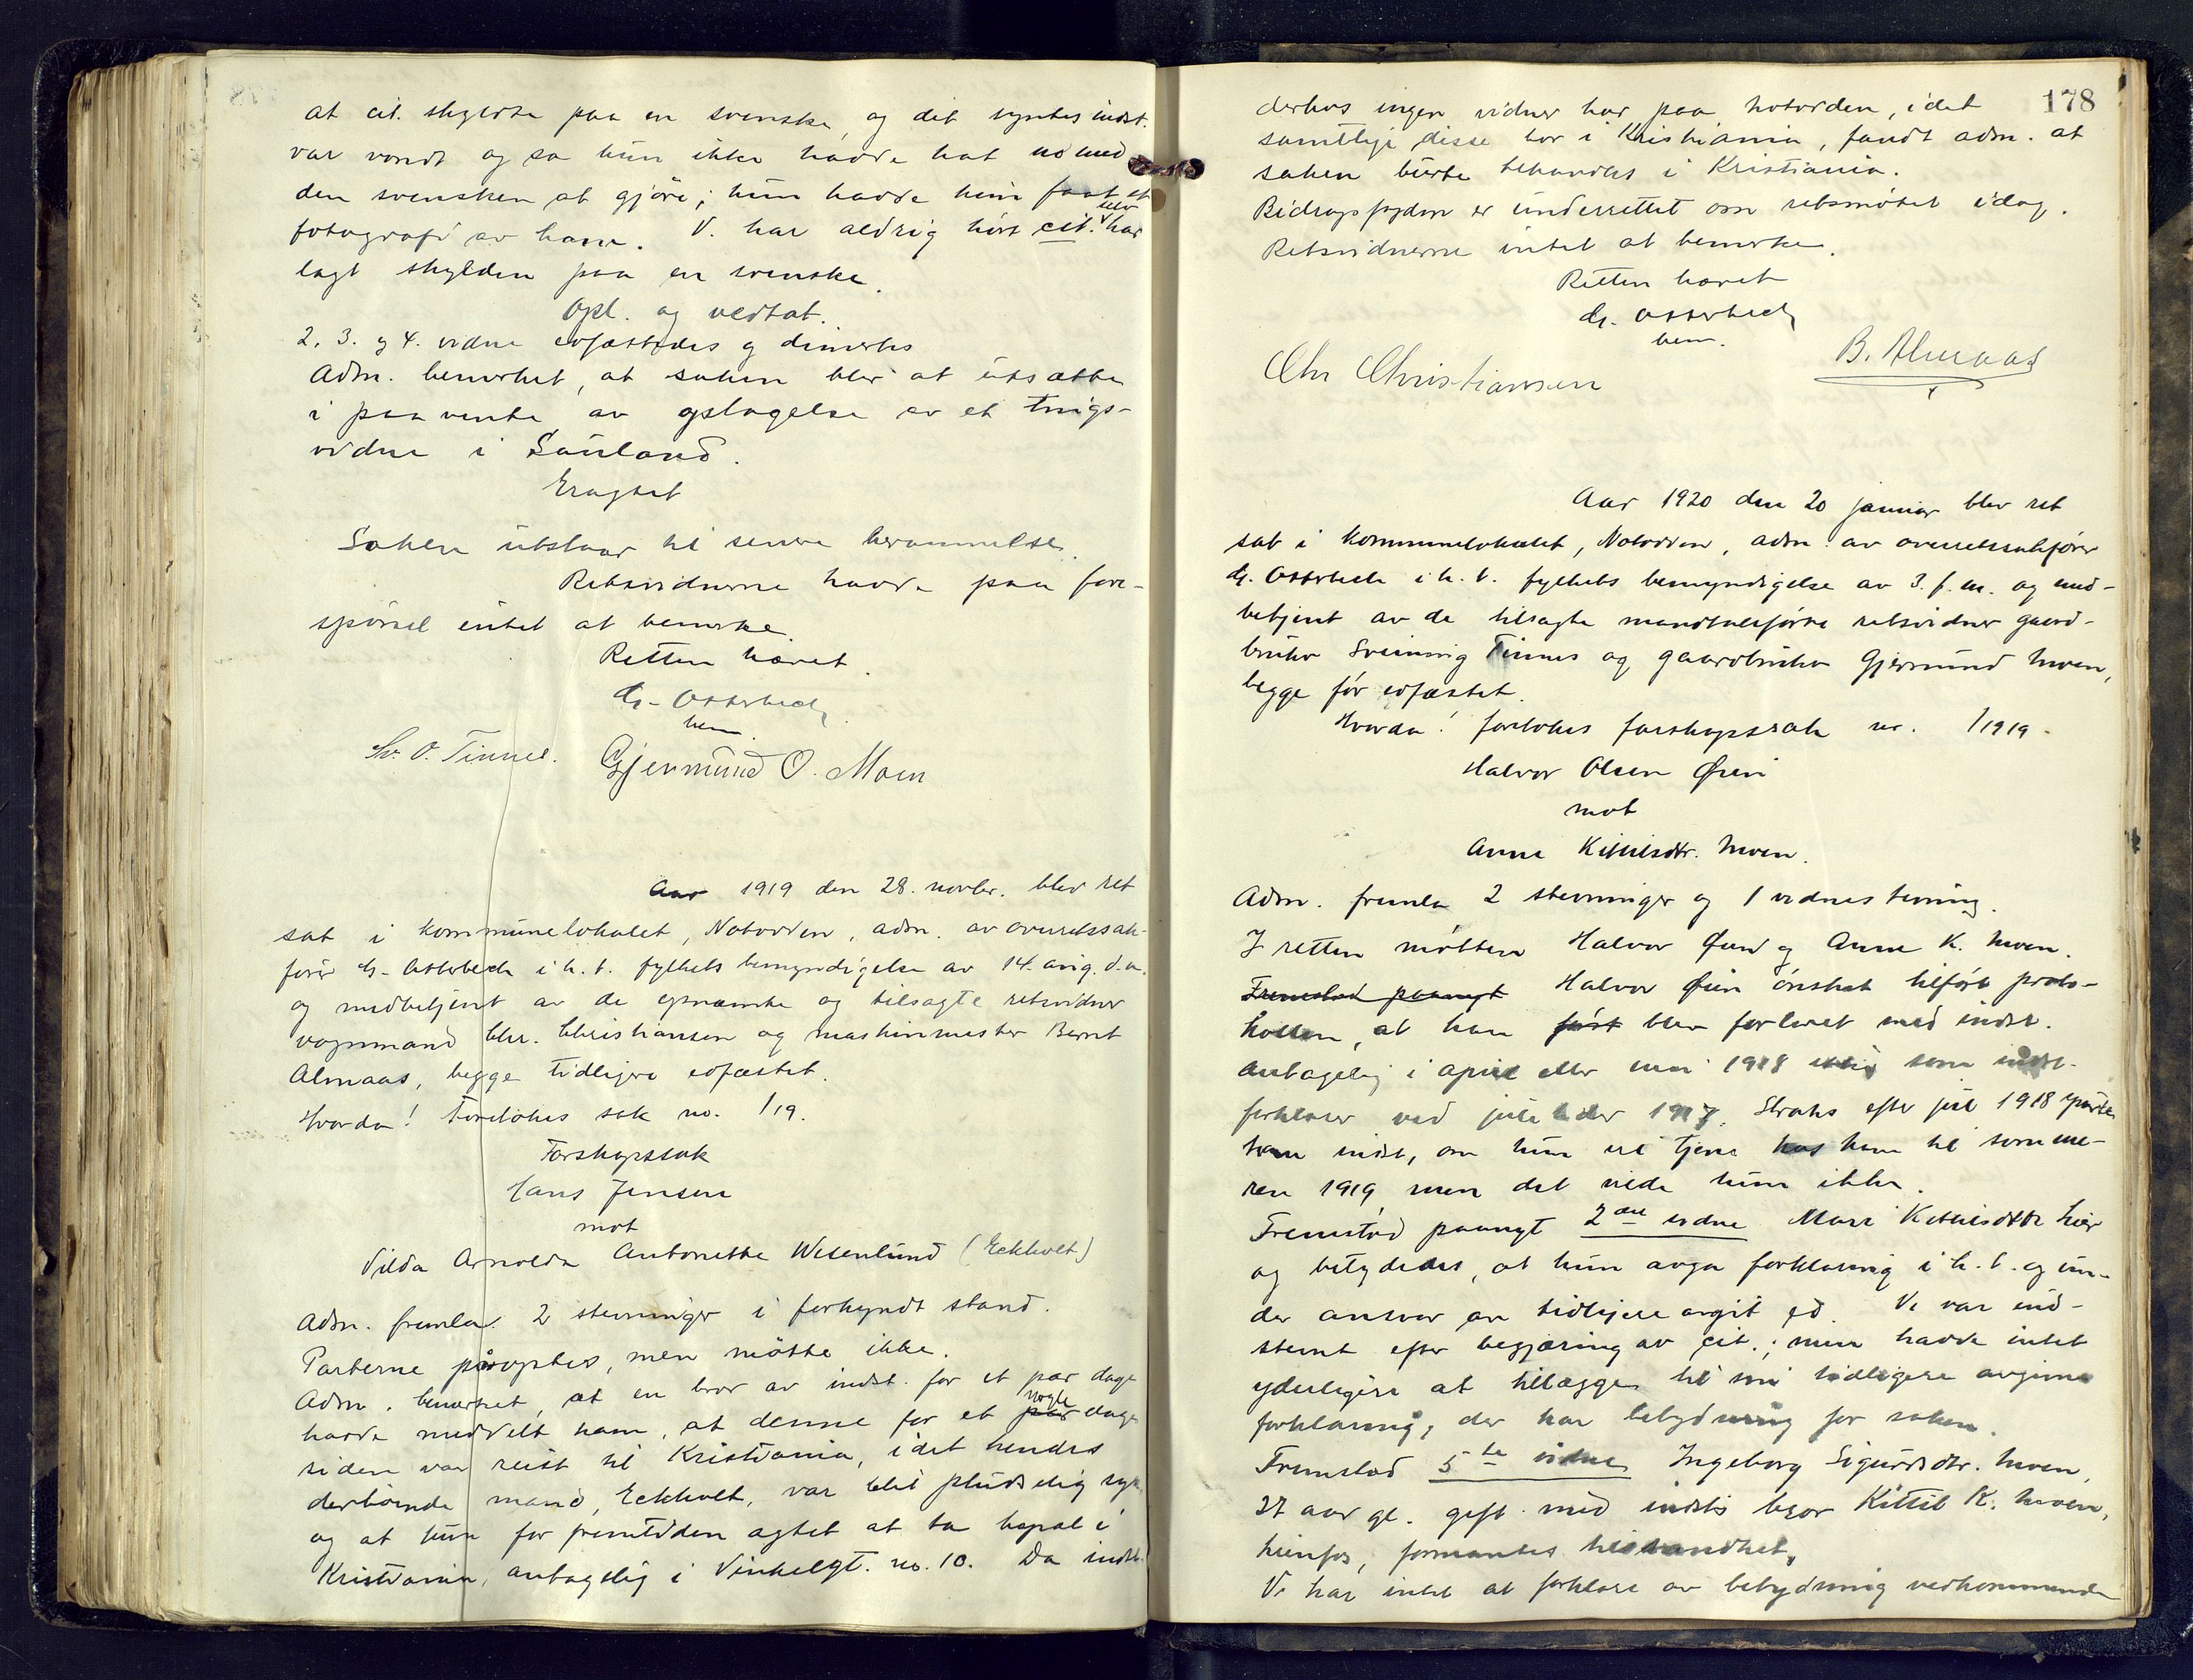 at cit. skyldte paa en svenske, og det syntes indst.
var vondt og sa hun ikke hadde hat no med
den svensken at gjøre; hun hadde kun faat et
fotografi av ham. V. har aldrig hørt cit. selv har
lagt skylden paa en svenske.
Opl. og vedtat.
2. 3. og 4. vidne edfæstedes og dimertes
Adm. bemerket, at saken blev at utsætte
i paavente av optagelse av et tings-
vidne i Sauland.
Eragtet
Saken utstaar til senere berammelse.
Retsvidnerne havde paa fore-
spørsel intet at bemerke.
Retten hævet.
G. Otterbech
bem.
Sv. O. Tinnes. Gjermund O. Moen
Aar 1919 den 28. novbr. blev ret
sat i kommunelokalet, Notodden, adm. av overretssak-
fører G. Otterbech i h. t. fylkets bemyndigelse av 14. aug. d. a.
og medbetjent av de opnævnte og tilsagte retsvidner
vognmand Chr. Christiansen og maskinmester Bernt
Almaas, begge tidligere edfæstet.
Hvorda! Foretokes sak no. /19.
Farskapssak
Hans Jensen
mot
Vilda Arnolda Antonette Wesenlund (Eckholt)
Adm. fremla 2 stevninger i forkyndt stand.
Parterne påroptes, men møtte ikke.
Adm. bemerket, at en bror av indst. for et par dage
havde meddelt ham, at denne for et par nogle dage
siden var reist til Kristiania, idet hendes
derboende mand, Eckholt, var blit pludselig syk,
og at hun for fremtiden agtet at ta bopæl i
Kristiania, antagelig i Vinkelgt. no. 10. Da indst.
178
derhos ingen vidner har paa Notodden, idet
samtlige disse bor i Kristiania, fandt adm. at
saken burte behandles i Kristiania.
Bidragsfogden er underrettet om retsmøtet idag.
Retsvidnerne intet at bemerke.
Retten hævet
G. Otterbech
bem.
Chr Christiansen B. Almaas
Aar 1920 den 20 januar blev ret
sat i kommunelokalet, Notodden, adm. av overretssakfører
G. Otterbech i h. t. fylkets bemyndigelse av 3. f. m. og med-
betjent av de tilsagte mandtalsførte retsvidner gaard-
bruker Sveinung Tinnes og gaardbruker Gjermund Moen,
begge før edfæstet.
Hvorda! foretokes farskapssak no. /1919.
Halvor Olsen Øien
mot
Anne Kittilsdtr. Moen.
Adm. fremla 2 stevninger og 1 vidnestevning.
I retten møtte Halvor Øien og Anne K. Moen.
Fremstod paanyt Halvor Øien ønsket tilført proto-
kollen, at han først blev forlovet med indst.
antagelig i april eller mai 1918 som indst.
forklarer ved juletider 1917. Straks efter jul 1918 spurte
han indst, om hun vil tjene hos ham til somme-
ren 1919, men det vilde hun ikke.
Fremstod paanyt 2det vidne Mari Kittilsdtr. Lier
og betydedes, at hun avga forklaring i h. t. og un-
der ansvar av tidligere avgit ed. Vi var ind-
stevnt efter begjæring av cit.; men hadde intet
yderligere at tillægge til sin tidligere avgivne
forklaring, der har betydning for saken.
Fremstod 5te vidne Ingeborg Sigurdsdtr. Moen,
27 aar gl. gift med indsts bror Kittil K. Moen,
hienfos, formantes til sandhet.
Vi har intet at forklare av betydning vedkommende